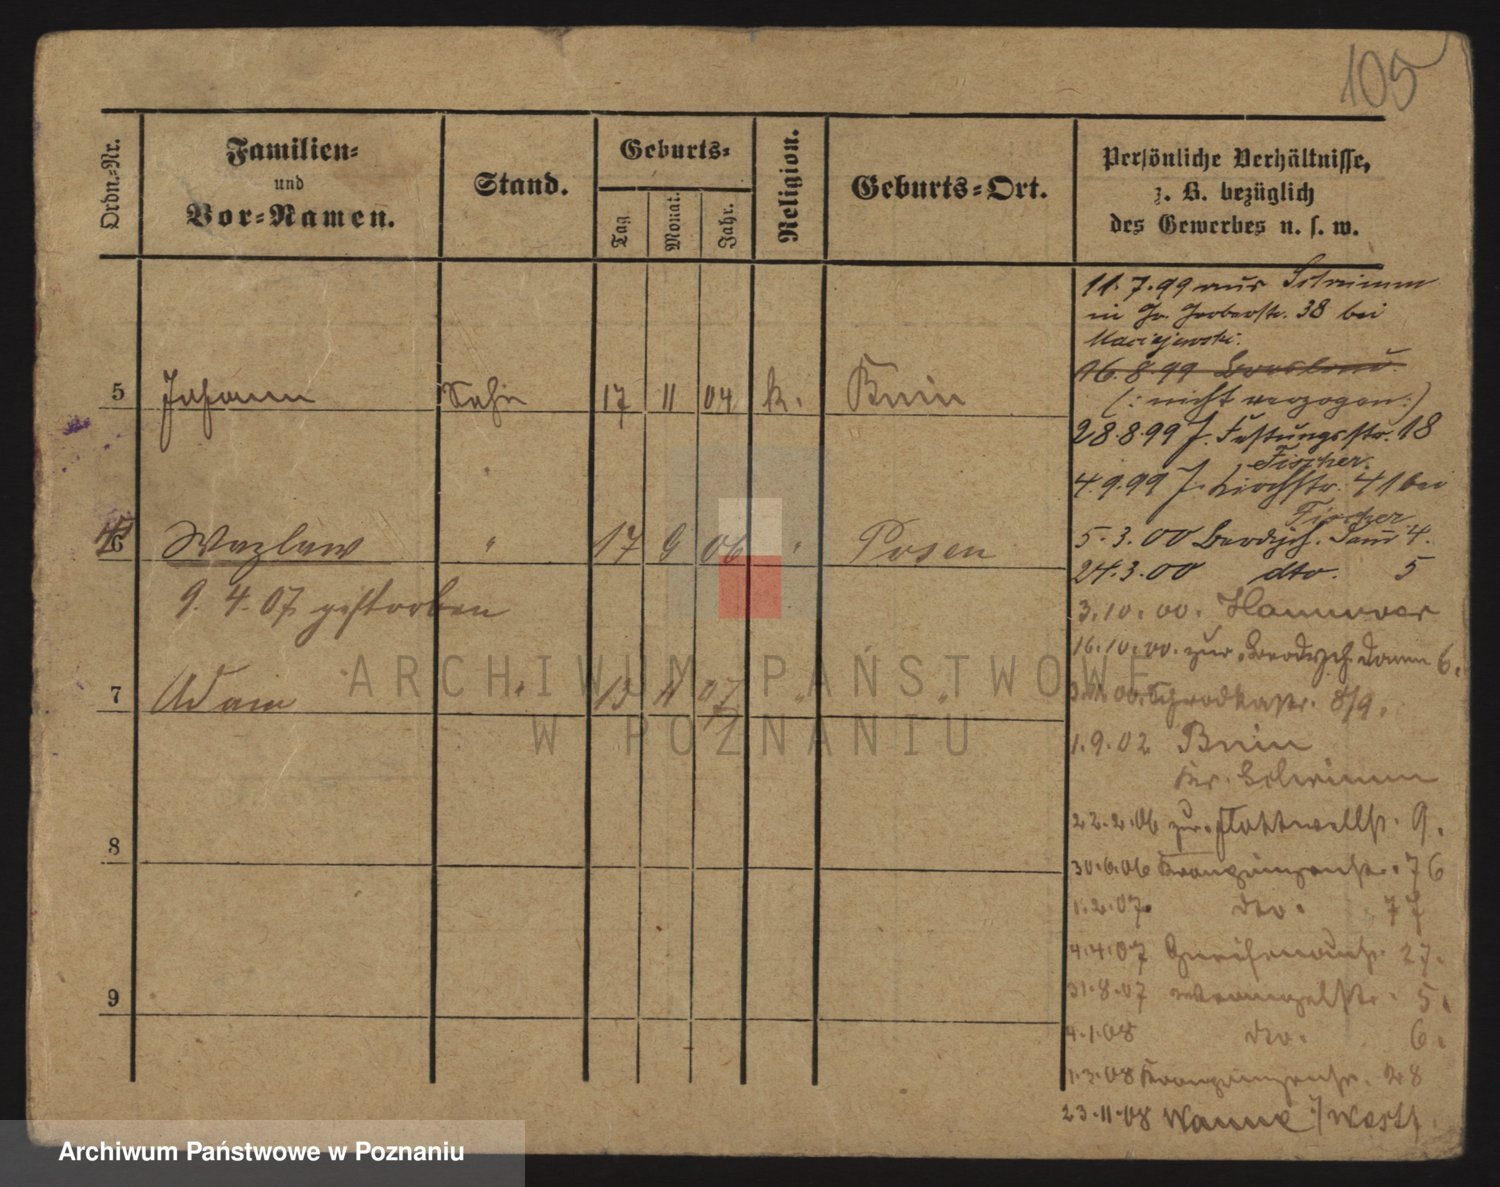 105
Ordn.-Nr.
Familien-
und
Vor-Namen.
Stand.
Geburts-
Tag.
Monat.
Jahr.
Religion.
Geburts-Ort.
Persönliche Verhältnisse,
z. B. bezüglich
des Gewerbes u. s. w.
11.7.99 aus Schrimm
in Gr. Gerberstr. 38 bei
Maciejewski.
16.8.99
(: nicht verzogen :)
5 Johann Sohn 17 11 04 k. Bnin
28.8.99 J. Festungsstr. 18
Fischer.
4.9.99 J. Kirchstr. 41 bei
Fischer
6 Wazlaw " 17 9 06 " Posen
5.3.00 Berdych. Damm 4.
24.3.00 dto. 5
9. 4. 07 gestorben
3.10.00. Hannover
16.10.00. zur. Berdych. Damm 6.
7 Adam " 13 11 07 " "
Schrodkastr. 8/9.
1.9.02 Bnin
Kr. Schrimm
22.2.06 zur. Flottwellstr. 9.
8
30.6.06 Kronprinzenstr. 76
1.2.07. dto. 77
4.4.07 Gneisenaustr. 27.
31.8.07 Wrangelstr. 5.
9
4.1.08 dto. 6.
1.3.08 Kronprinzenstr. 28
23.11.08 Wanne i/Westf.
ARCHIWUM PAŃSTWOWE
W POZNANIU
Archiwum Państwowe w Poznaniu